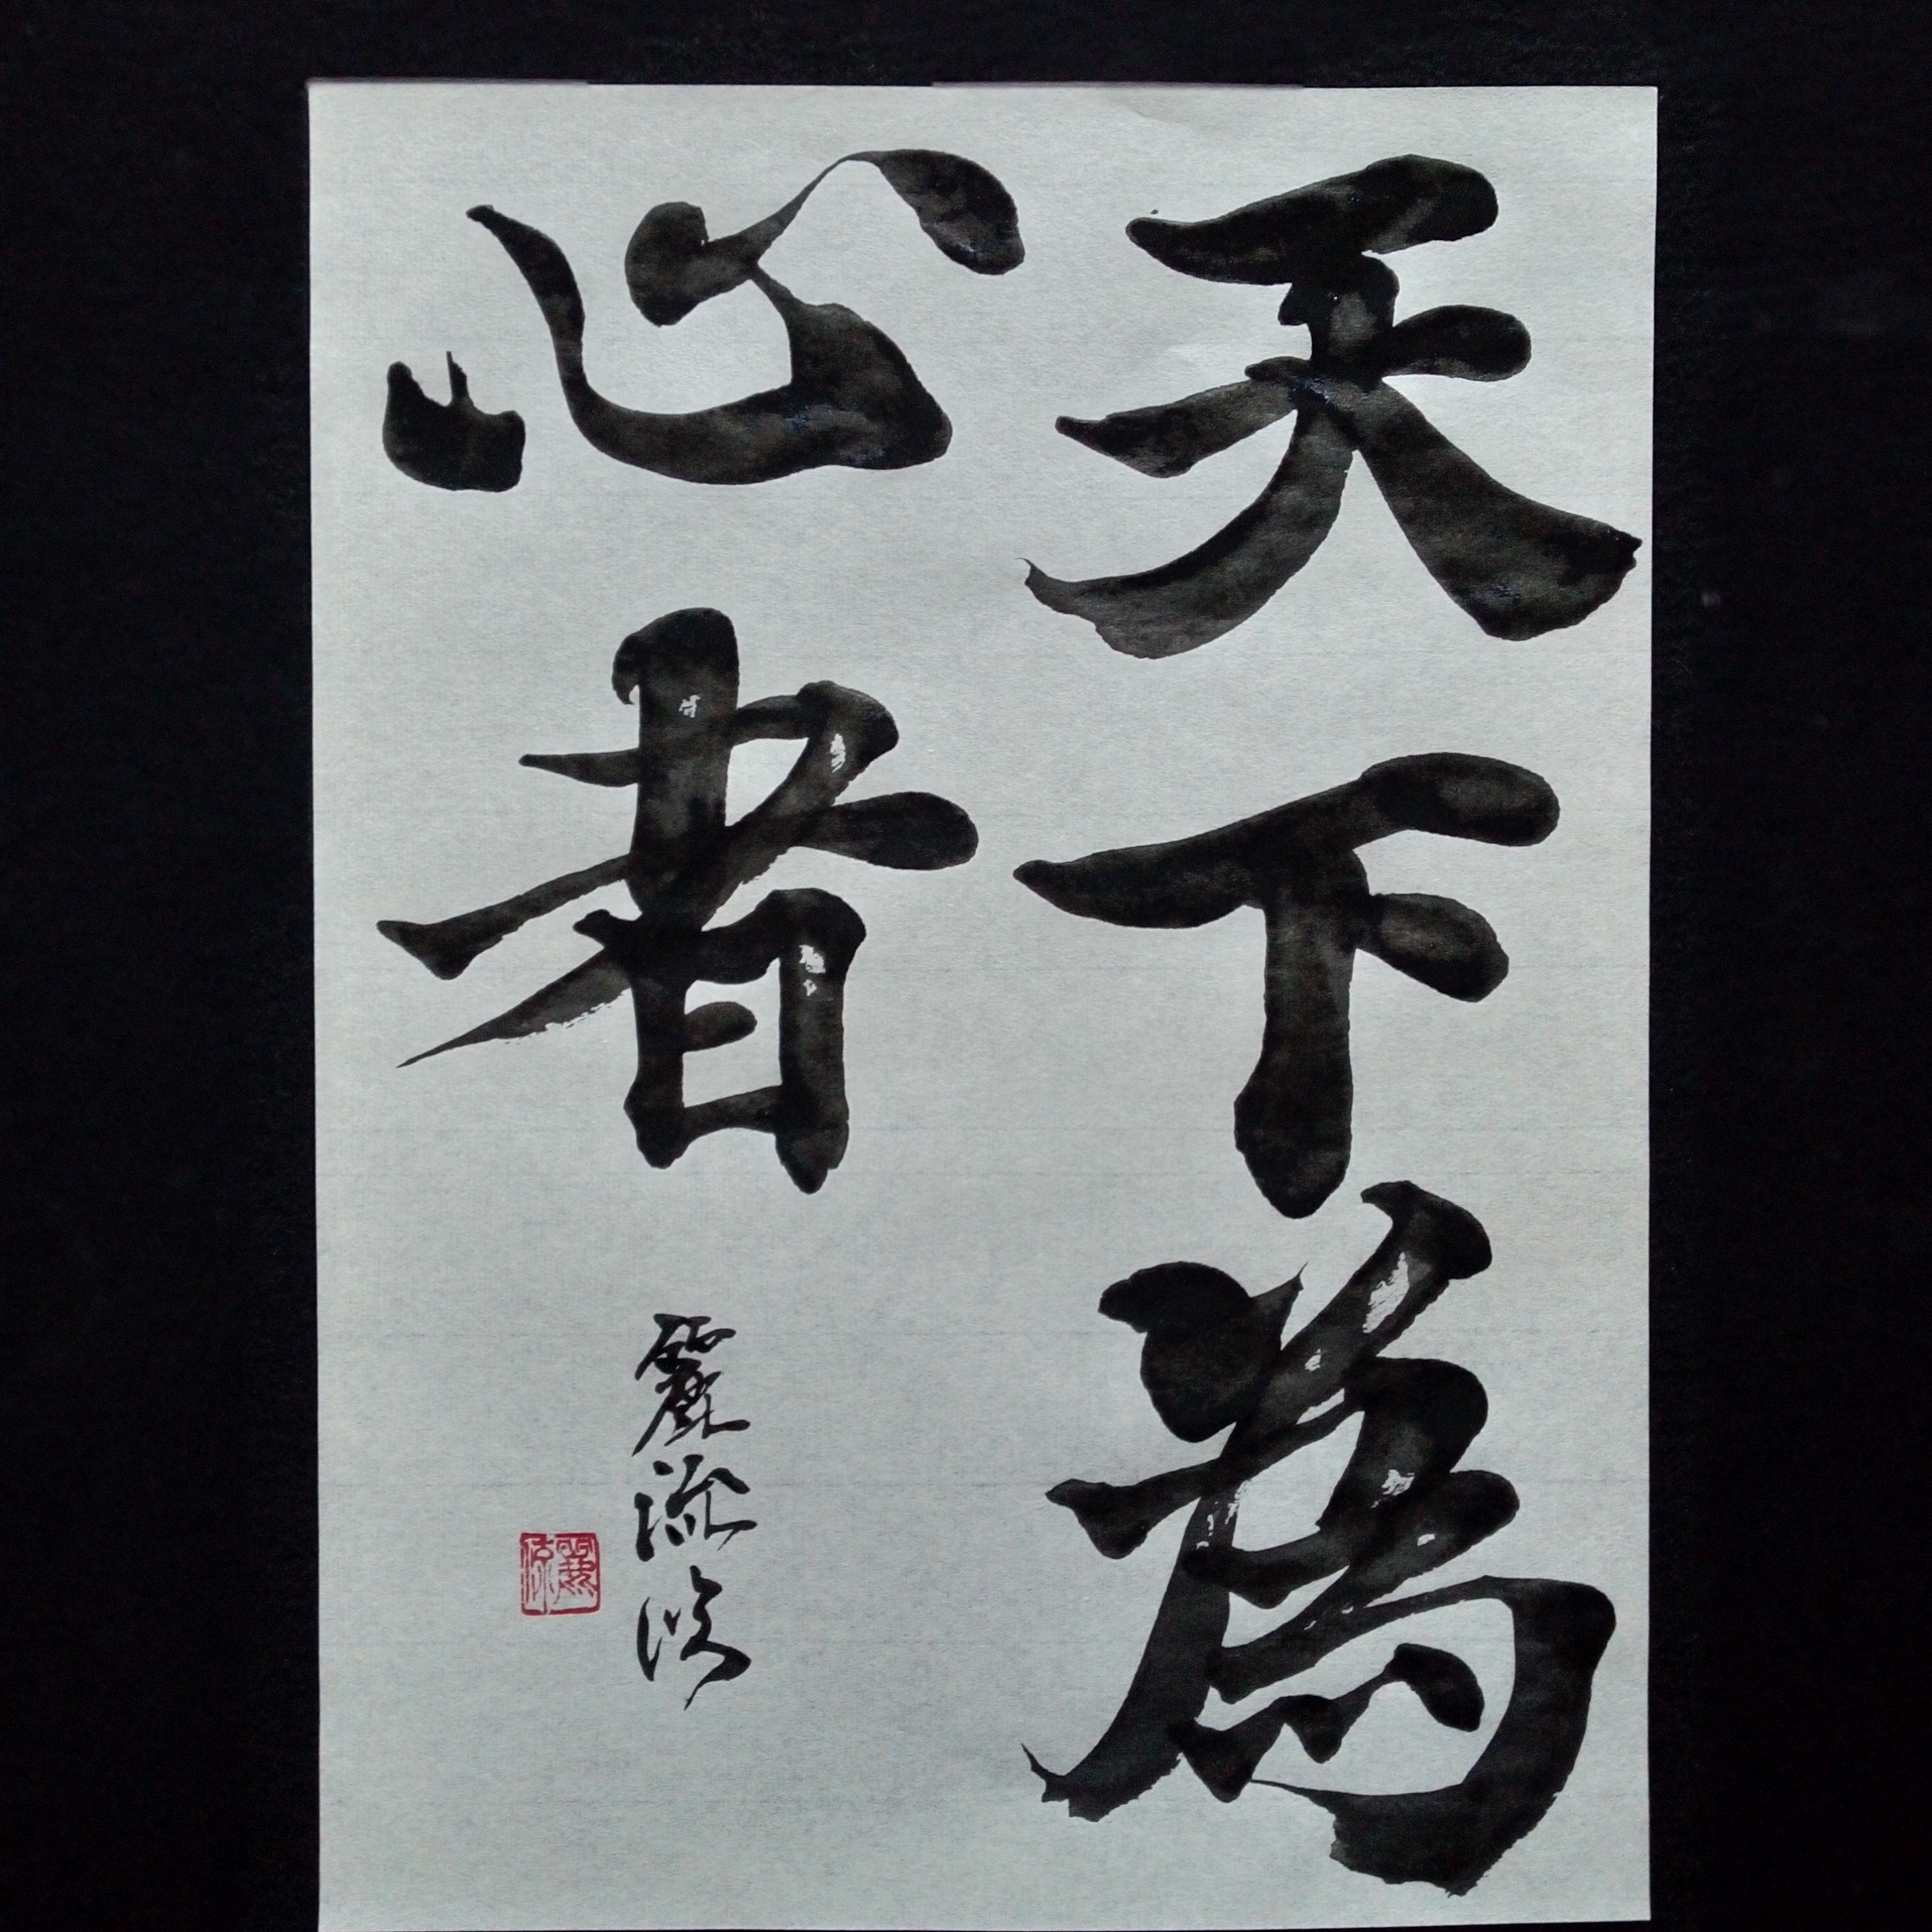 天下為
心者
麗流